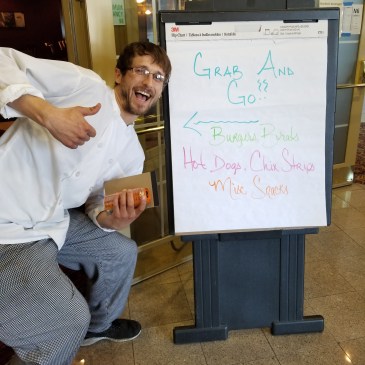 3M
Grab And
Go..
Burgers
Hot Dogs, Chix Strips
Misc Snacks